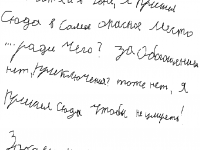 я пришёл
Сюда в Самое опасное место
... ради чего? За Обогащением
нет, приключения? тоже нет, я
пришёл Сюда чтобы не умереть!